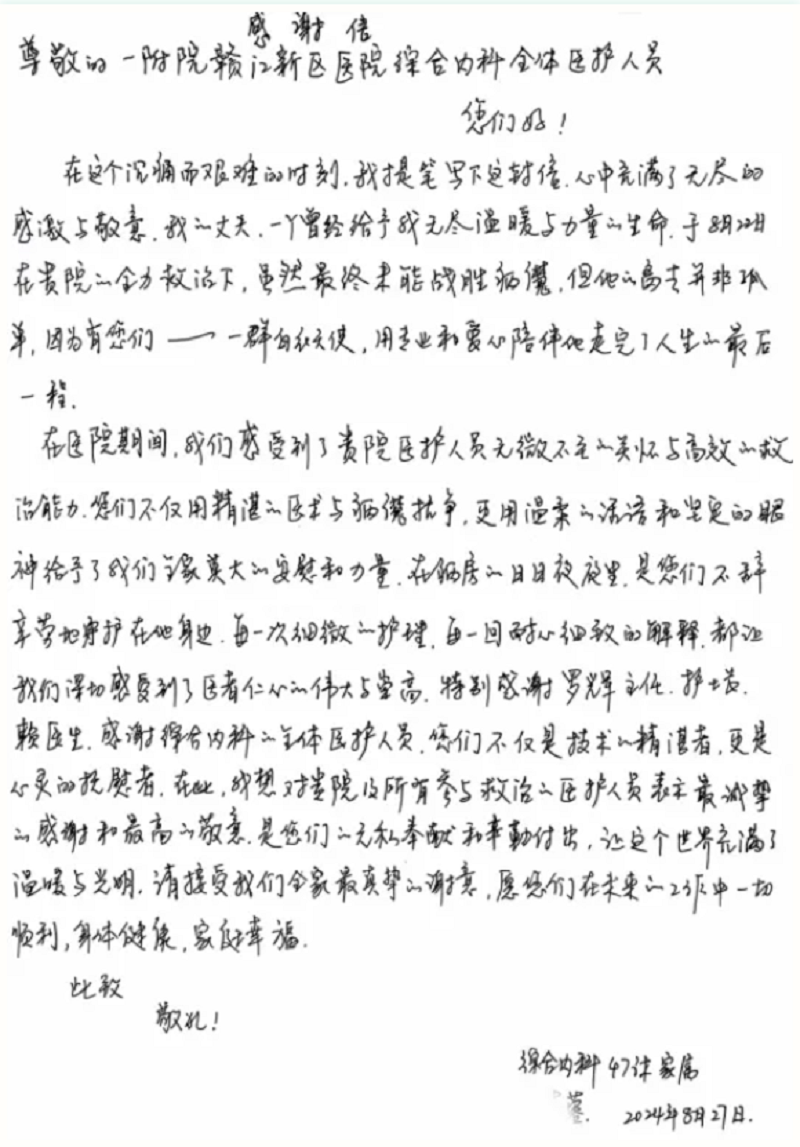 感谢信
尊敬的一附院赣江新区医院综合内科全体医护人员
您们好！
在这个沉痛而艰难的时刻，我提笔写下这封信，心中充满了无尽的
感激与敬意。我的丈夫，一个曾经给予我无尽温暖与力量的生命，于8月22日
在贵院的全力救治下，虽然最终未能战胜病魔，但他的离去并非孤
单，因为有您们——一群白衣天使，用专业和爱心陪伴他走完了人生的最后
一程。
在医院期间，我们感受到了贵院医护人员无微不至的关怀与高效的救
治能力。您们不仅用精湛的医术与病魔抗争，更用温柔的话语和坚定的眼
神给予了我们全家莫大的安慰和力量。在病房的日日夜夜里，是您们不辞
辛劳地守护在他身边，每一次细微的护理，每一回耐心细致的解释，都让
我们深切感受到了医者仁心的伟大与崇高。特别感谢罗辉主任、护士长、
赖医生，感谢综合内科的全体医护人员，您们不仅是技术的精湛者，更是
心灵的抚慰者。在此，我想对贵院及所有参与救治的医护人员表示最诚挚
的感谢和最高的敬意。是您们的无私奉献和辛勤付出，让这个世界充满了
温暖与光明。请接受我们全家最真挚的谢意，愿您们在未来的工作中一切
顺利，身体健康，家庭幸福。
此致
敬礼！
综合内科47床家属
2024年8月27日.